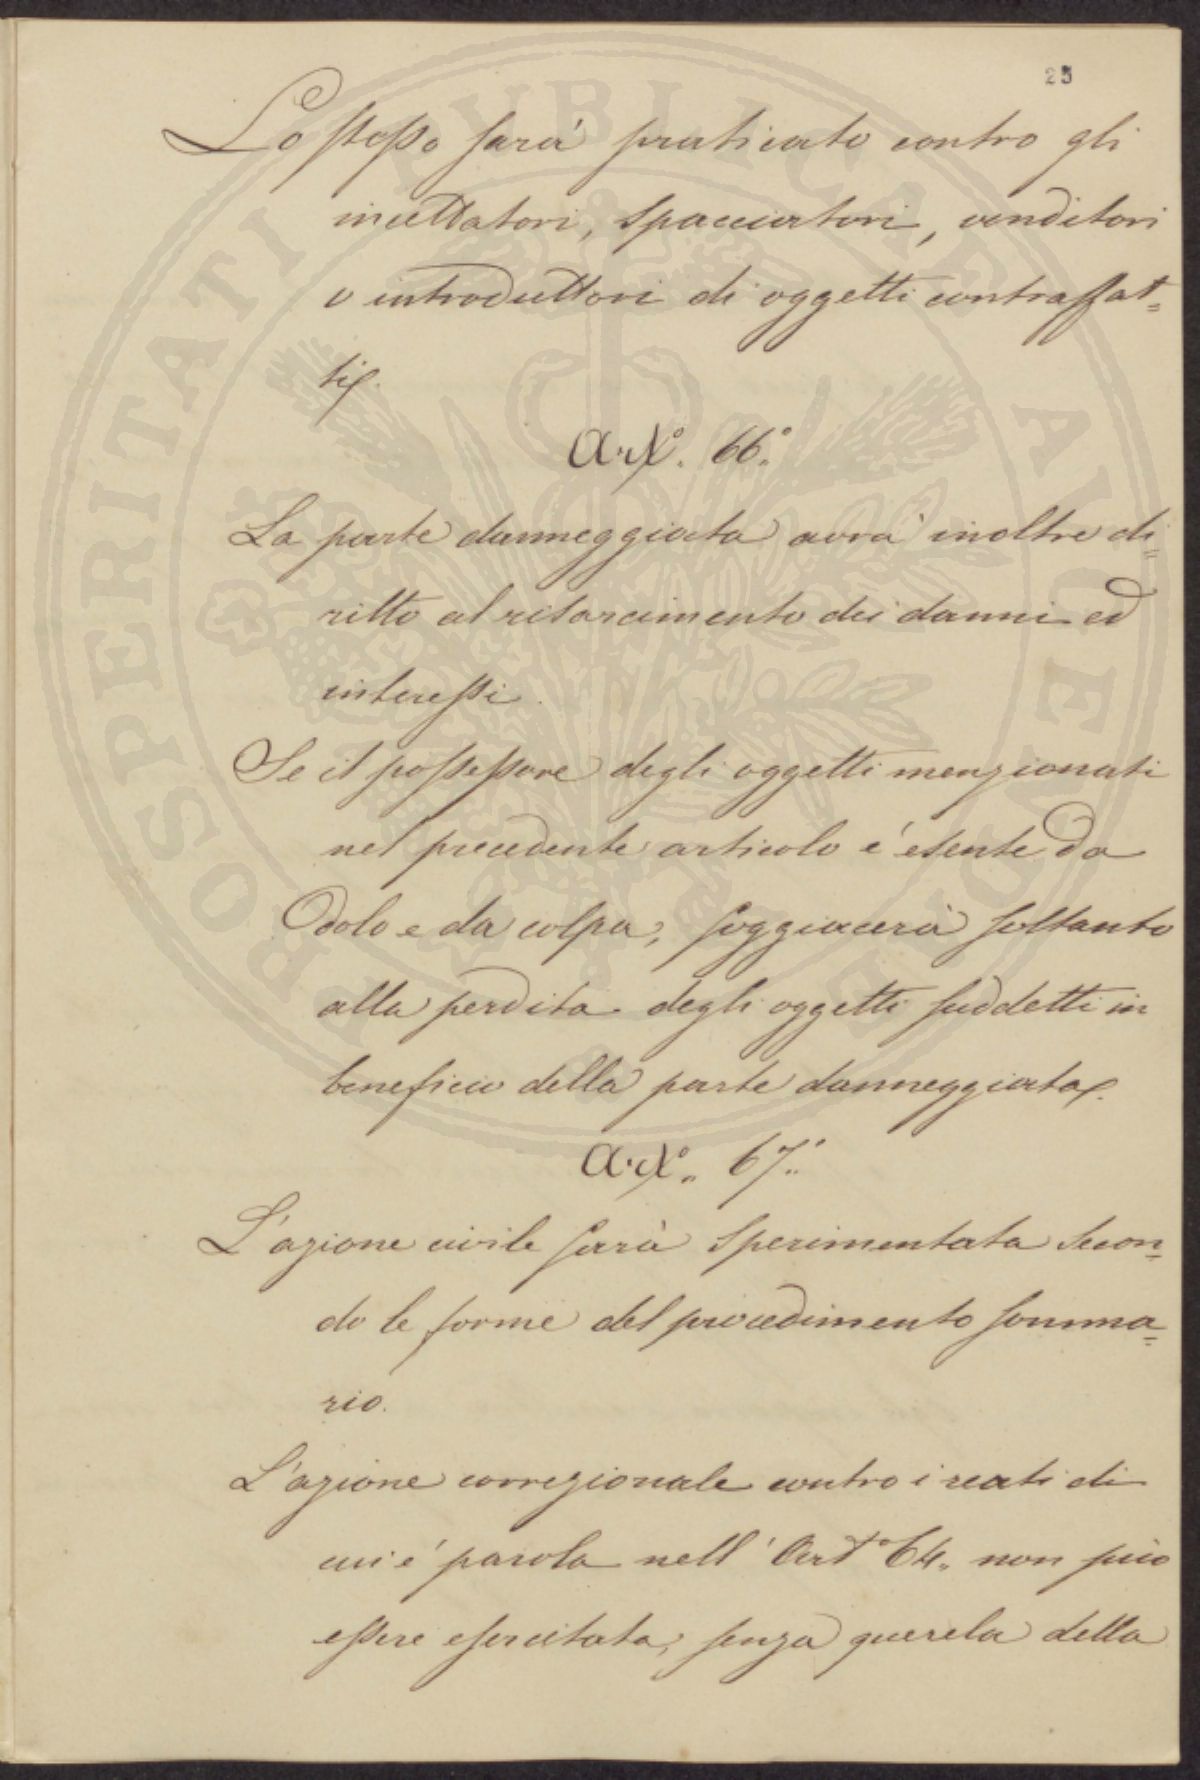 25
Lo stesso sarà praticato contro gli
incettatori, spacciatori, venditori
o introduttori di oggetti contraffat=
ti.
Art.° 66.°
La parte danneggiata avrà inoltre di=
ritto al risarcimento dei danni ed
interessi.
Se il possessore degli oggetti menzionati
nel precedente articolo è esente da
dolo e da colpa, soggiacerà soltanto
alla perdita degli oggetti suddetti in
beneficio della parte danneggiata.
Art.° 67.°
L'azione civile sarà sperimentata secon=
do le forme del procedimento somma=
rio.
L'azione correzionale contro i reati di
cui è parola nell'Art.° 64. non può
essere esercitata, senza querela della
PROSPERITATI PVBLICAE AVGENDAE